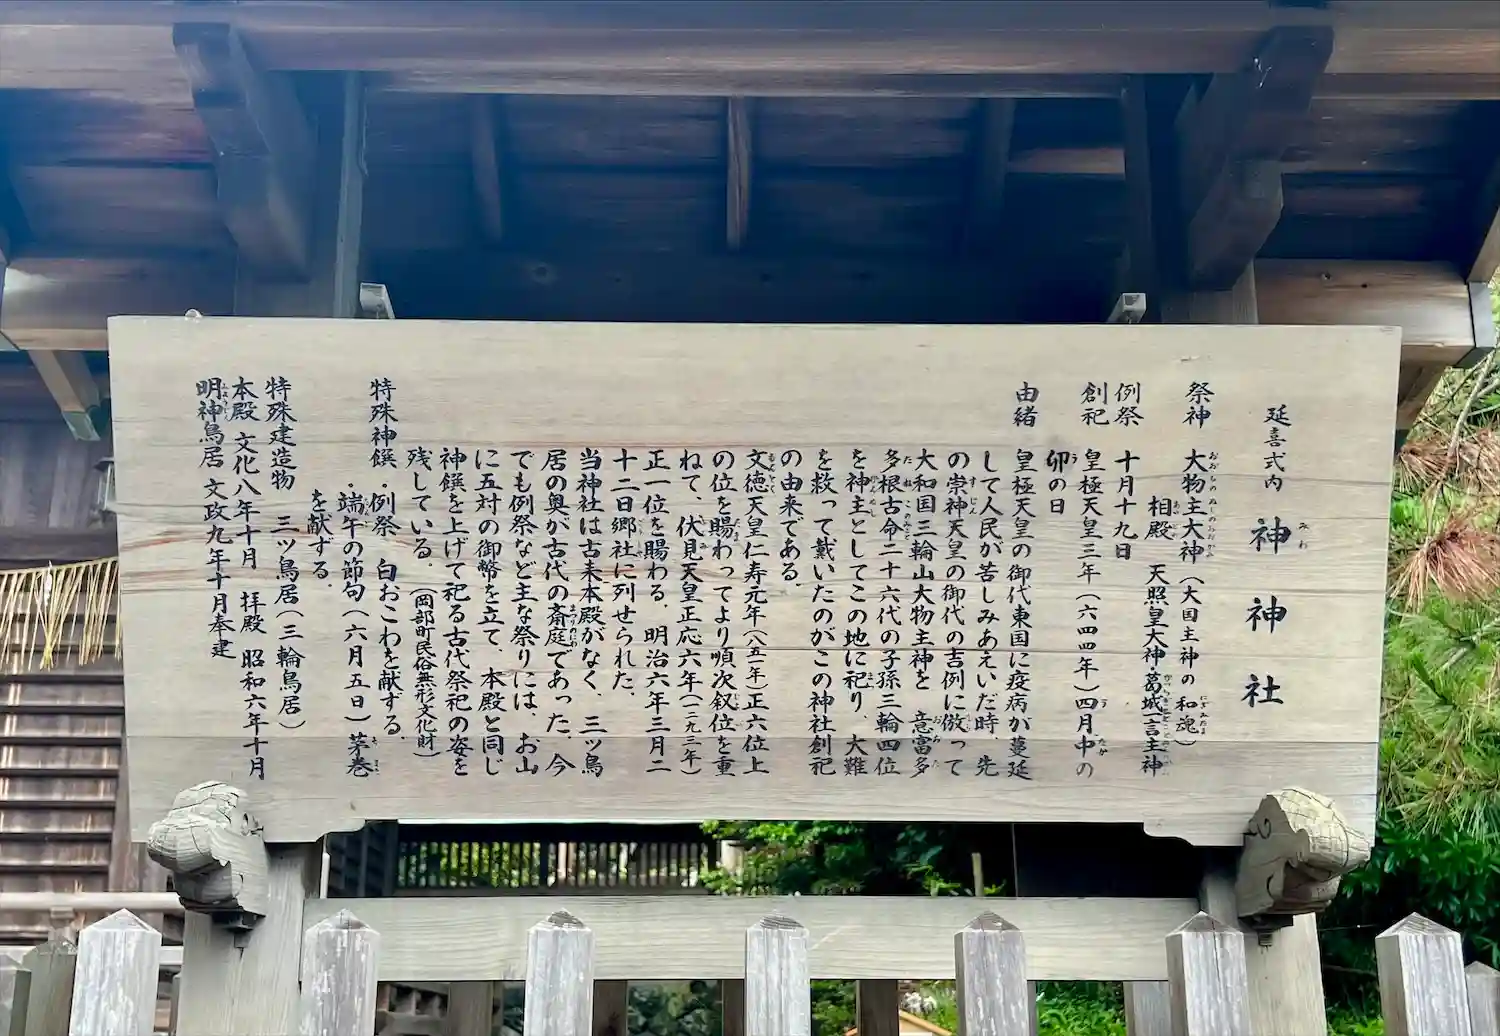 延喜式内 神神社
祭神 大物主大神(大国主神の和魂)
相殿 天照皇大神 葛城一言主神
例祭 十月十九日
創祀 皇極天皇三年(六四四年)四月中の
卯の日
由緒 皇極天皇の御代東国に疫病が蔓延
して人民が苦しみあえいだ時、先
の崇神天皇の御代の吉例に倣って
大和国三輪山大物主神を 意富多
多根古命二十六代の子孫三輪四位
を神主としてこの地に祀り、大難
を救って戴いたのがこの神社創祀
の由来である。
文徳天皇仁寿元年(八五一年)正六位上
の位を賜わってより順次叙位を重
ねて、伏見天皇正応六年(一二九三年)
正一位を賜わる。明治六年三月二
十二日郷社に列せられた。
当神社は古来本殿がなく、三ッ鳥
居の奥が古代の斎庭であった。今
でも例祭など主な祭りには、お山
に五対の御幣を立て、本殿と同じ
神饌を上げて祀る古代祭祀の姿を
残している。(岡部町民俗無形文化財)
特殊神饌 ・例祭 白おこわを献ずる。
・端午の節句(六月五日)茅巻
を献ずる。
特殊建造物 三ッ鳥居(三輪鳥居)
本殿 文化八年十月 拝殿 昭和六年十月
明神鳥居 文政九年十月奉建